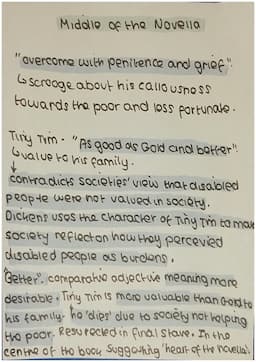 Middle of the Novella
"overcome with penitence and grief".
↳ scrooge about his callousness
towards the poor and less fortunate.
Tiny Tim - "As good as Gold and better"
↳ value to his family.
↓ contradicts societies' view that disabled
people were not valued in society.
Dickens uses the character of Tiny Tim to make
society reflect on how they percevied
disabled people as burdens.
"Better". comparative adjective meaning more
desirable. Tiny Tim is more valuable than Gold to
his family. he 'dies' due to society not helping
the poor. Resurected in final stave. In the
centre of the book suggesting 'heart of the novella'.